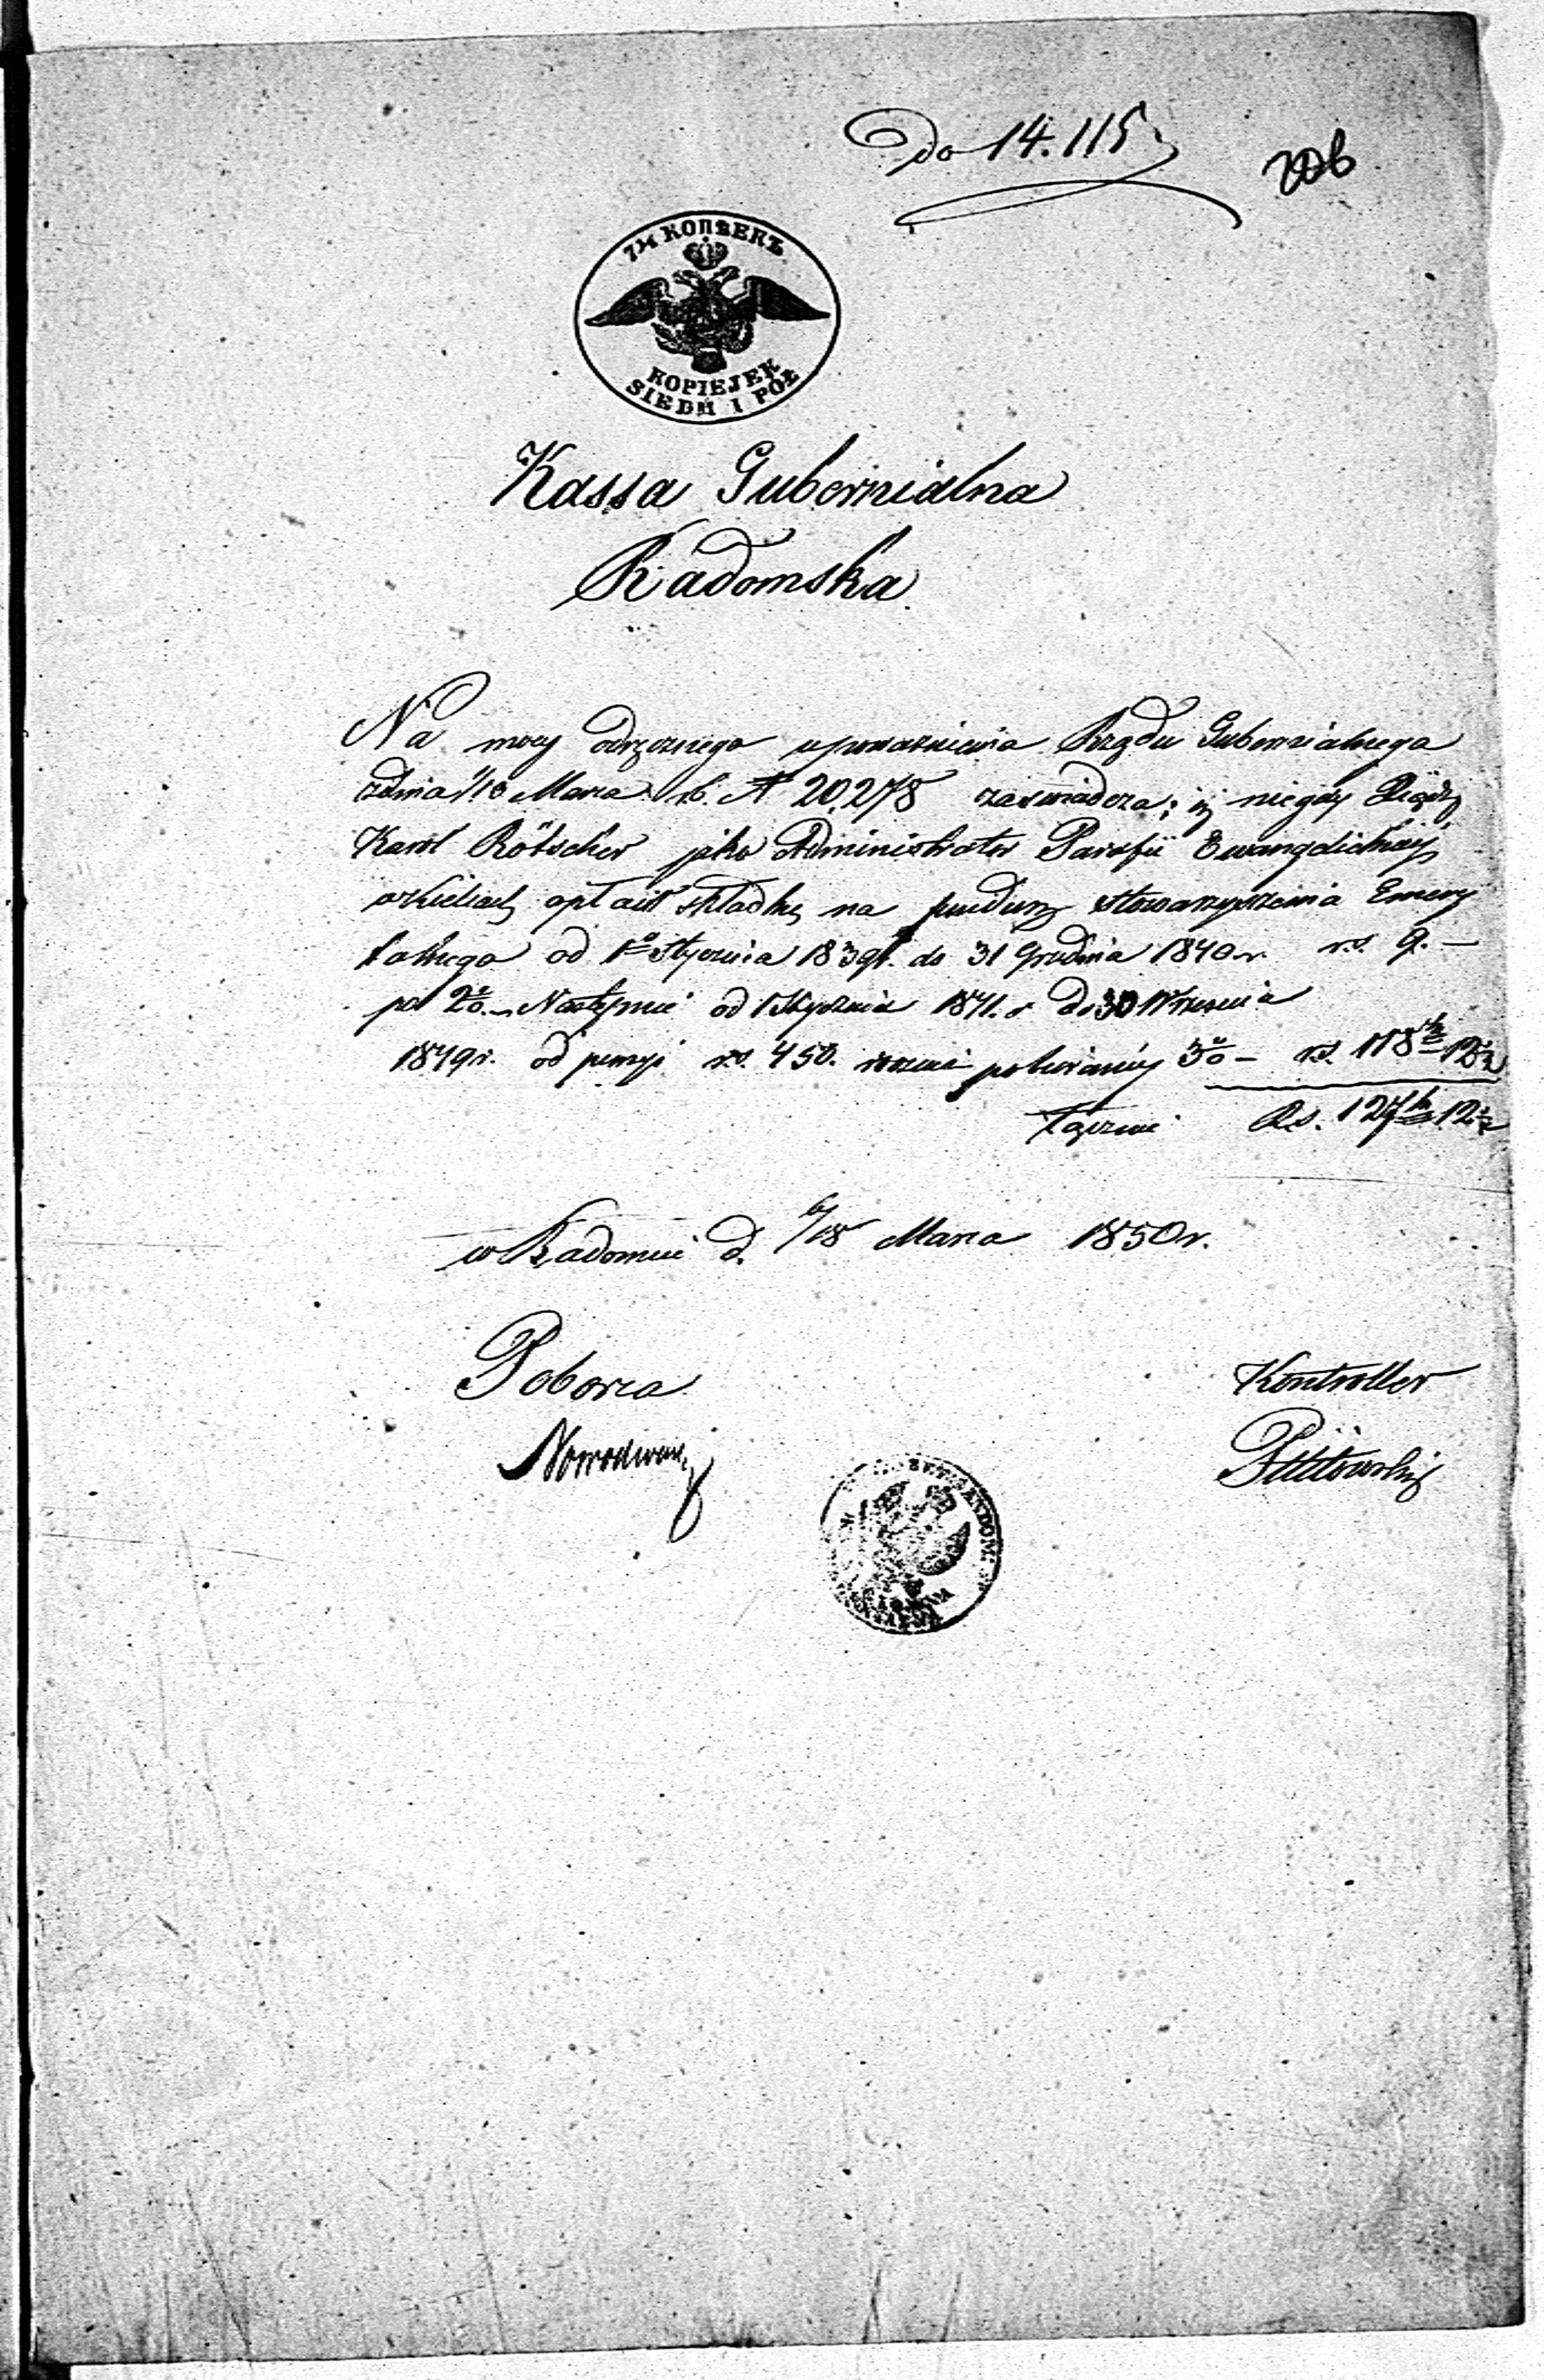 do 14.115
7½ КОПѢЕКЪ
KOPIEJEK
SIEDM I PÓŁ
Kassa Gubernialna
Radomska
Na mocy odręcznego upoważnienia Rządu Gubernialnego
zdnia /13 Marca rb. N 20,278 zaświadcza; iż niegdy Xiądz
Karol Rötscher jako Administrator Parafii Ewangelickiej
w Kielcach opłacił składkę na fundusz Stowarzyszenia Emery
talnego od 1o Stycznia 1839r. do 31 Grudnia 1840 r. rs. 9. —
po 2%. Następnie od 1 Stycznia 1841. r do 30 Września
1849 r. od pensyi rs. 450. rocznie pobieranej 3% — rs. 118 12½
Łącznie Rs. 127 12½
w Radomiu d. 6/18 Marca 1850 r.
Poborca
Kontroller